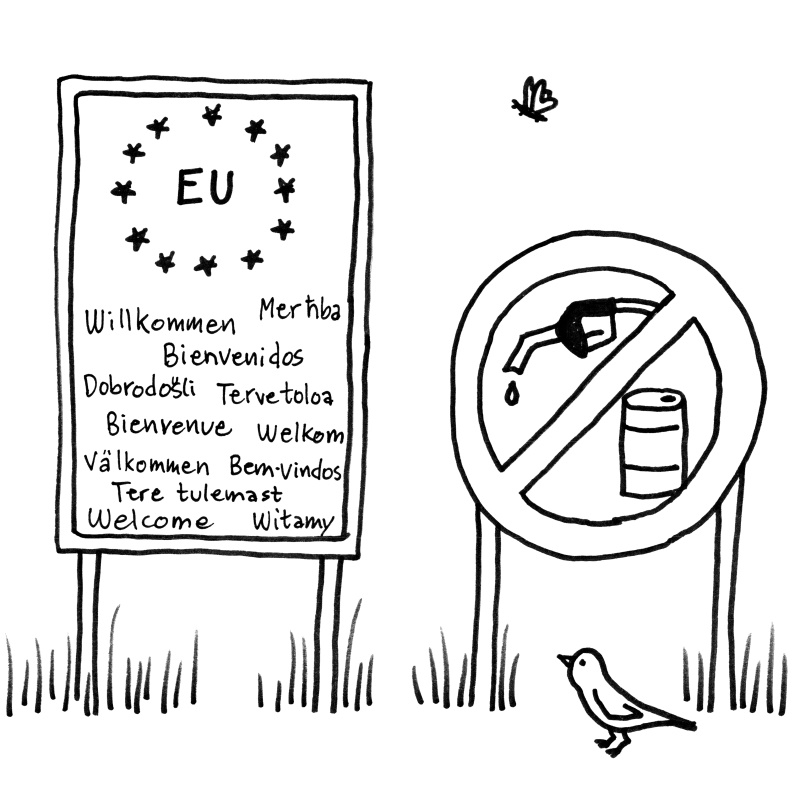 EU
Willkommen Merħba
Bienvenidos
Dobrodošli Tervetoloa
Bienvenue Welkom
Välkommen Bem-vindos
Tere tulemast
Welcome Witamy